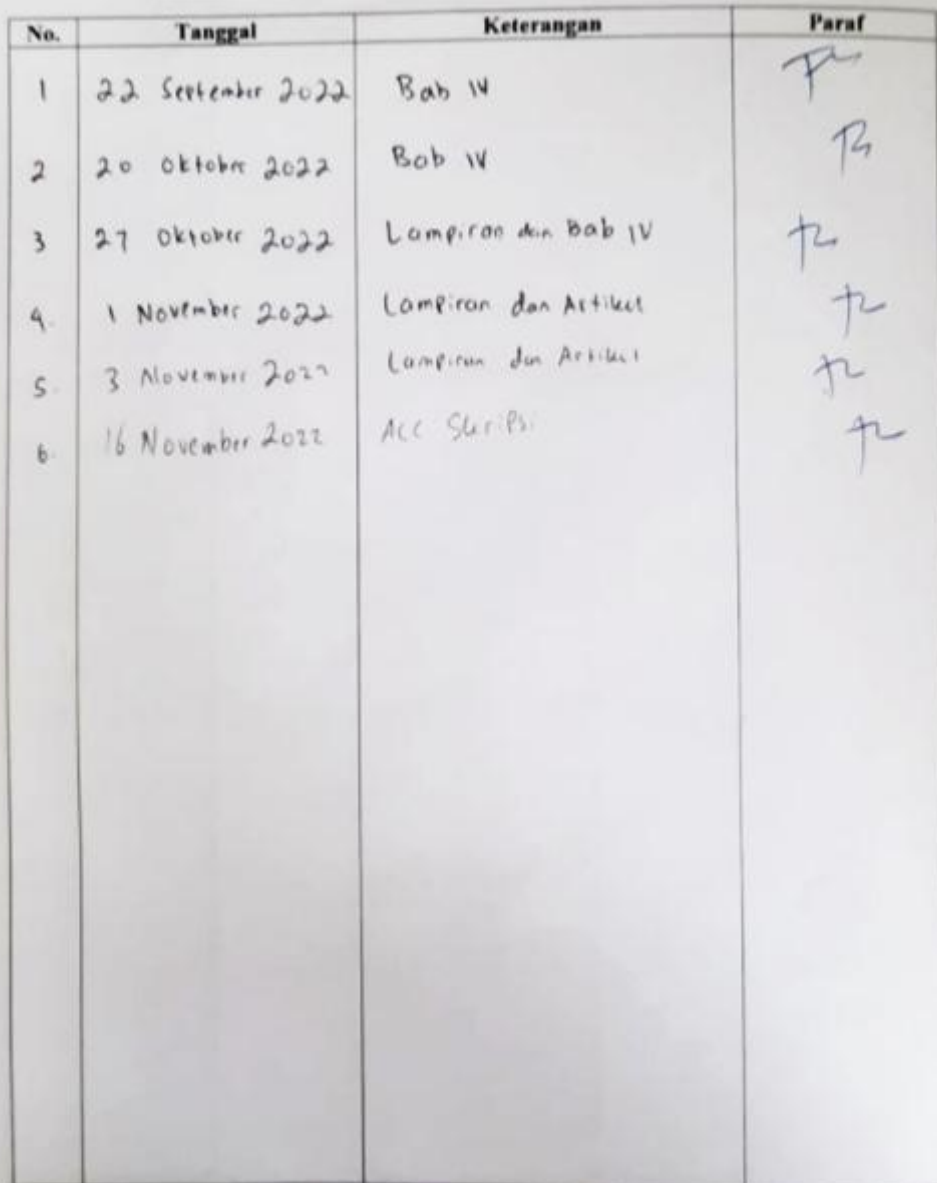 No. Tanggal Keterangan Paraf
1 22 September 2022 Bab IV
2 20 Oktober 2022 Bab IV
3 27 Oktober 2022 Lampiran dan Bab IV
4. 1 November 2022 Lampiran dan Artikel
5. 3 November 2022 Lampiran dan Artikel
6. 16 November 2022 ACC Skripsi